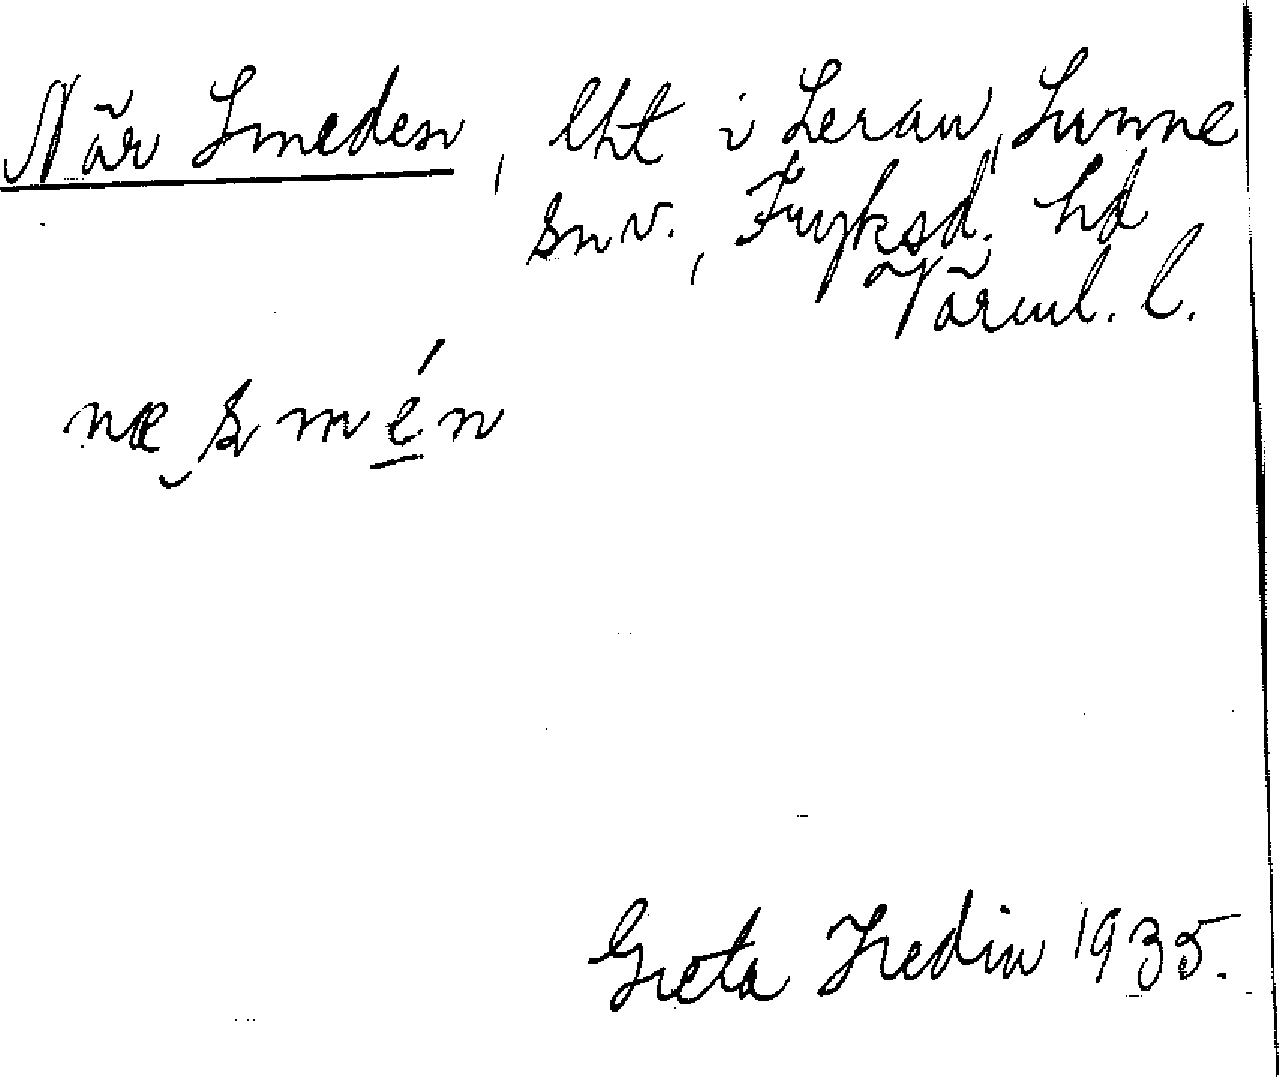 När Smeden, lht i Leran, Sunne
snv., Fryksd. hd
Värml. l.
næ smén
Greta Hedin 1935.